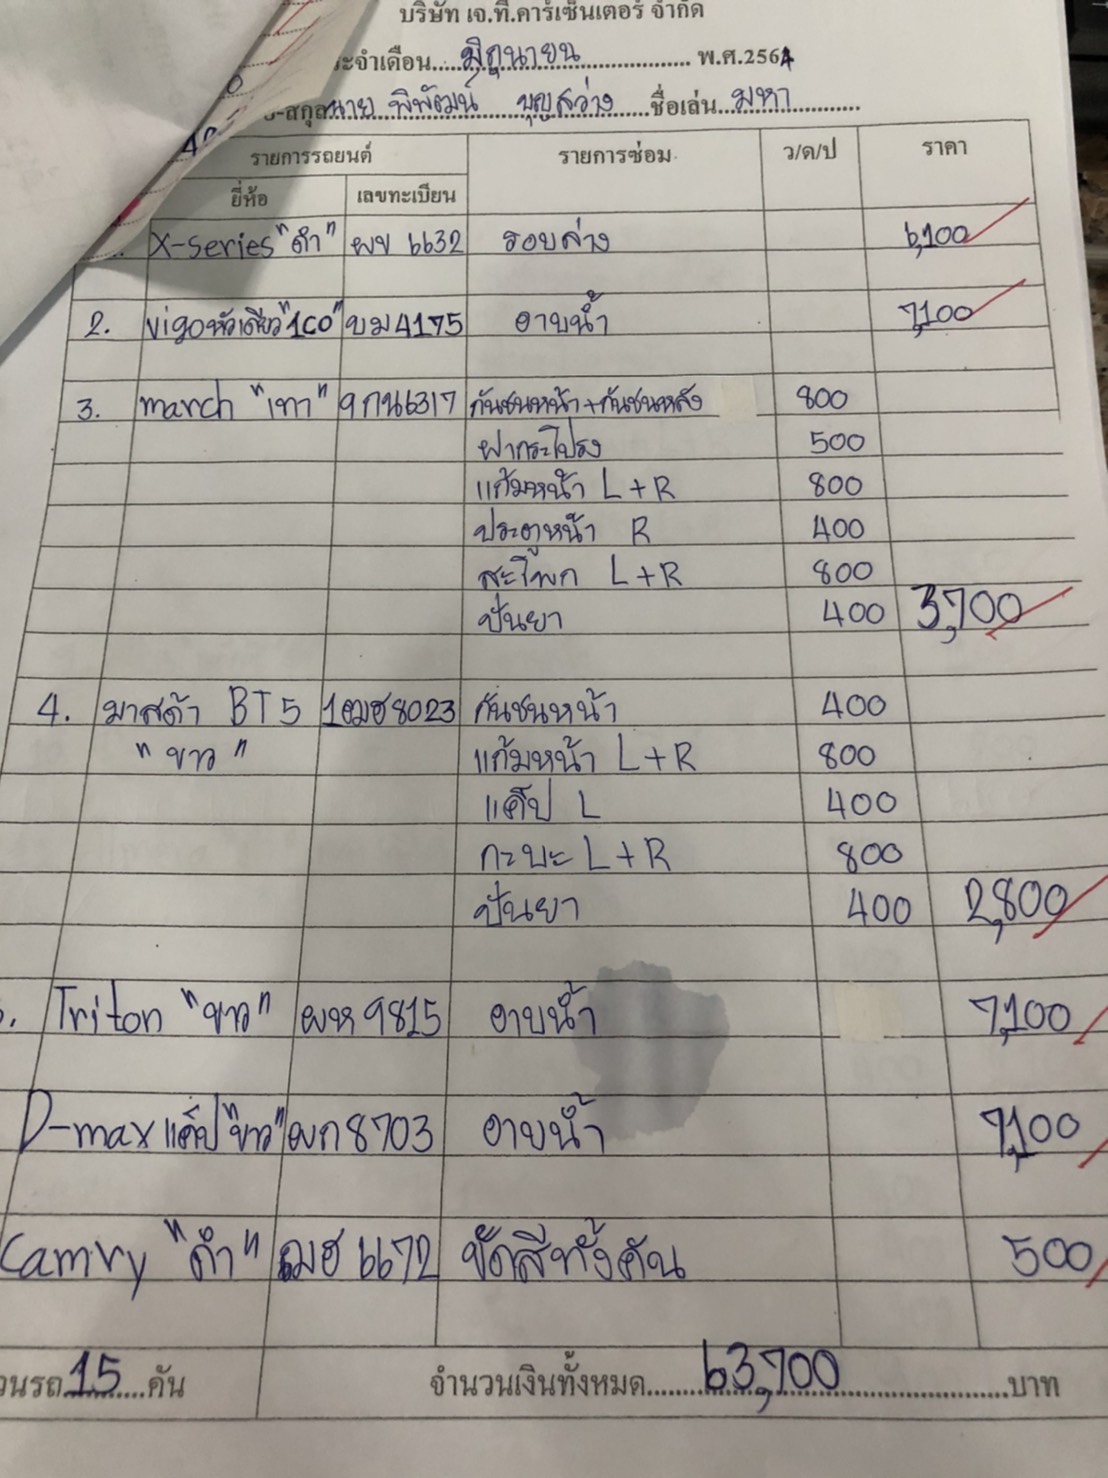 บริษัท เจ.ที.คาร์เซ็นเตอร์ จำกัด
ระจำเดือน....มิถุนายน.... พ.ศ.2564
-สกุลนาย พิพัฒน์ บุญสว่าง....ชื่อเล่น..มหา....
รายการรถยนต์ รายการซ่อม ว/ด/ป ราคา
ยี่ห้อ เลขทะเบียน
X-series "ดำ" ผข 6632 รอบล่าง 6,100
2. Vigoหัวเดียว"1CO" บม4175 อาบน้ำ 7,100
3. march "เทา" 9กน6317 กันชนหน้า+กันชนหลัง 800
ฝากระโปรง 500
แก้มหน้า L+R 800
ประตูหน้า R 400
สะโพก L+R 800
ปั่นยา 400 3,700
4. มาสด้า BT5 1ฒฮ8023 กันชนหน้า 400
"ขาว" แก้มหน้า L+R 800
แค็ป L 400
กะบะ L+R 800
ปั่นยา 400 2,800
. Triton "ขาว" ผห 9815 อาบน้ำ 7,100
D-maxแค็ป"ขาว" ผก8703 อาบน้ำ 7,100
Camry "ดำ" ฌฮ 6672 ขัดสีทั้งคัน 500
วนรถ.15....คัน จำนวนเงินทั้งหมด....63,700....บาท